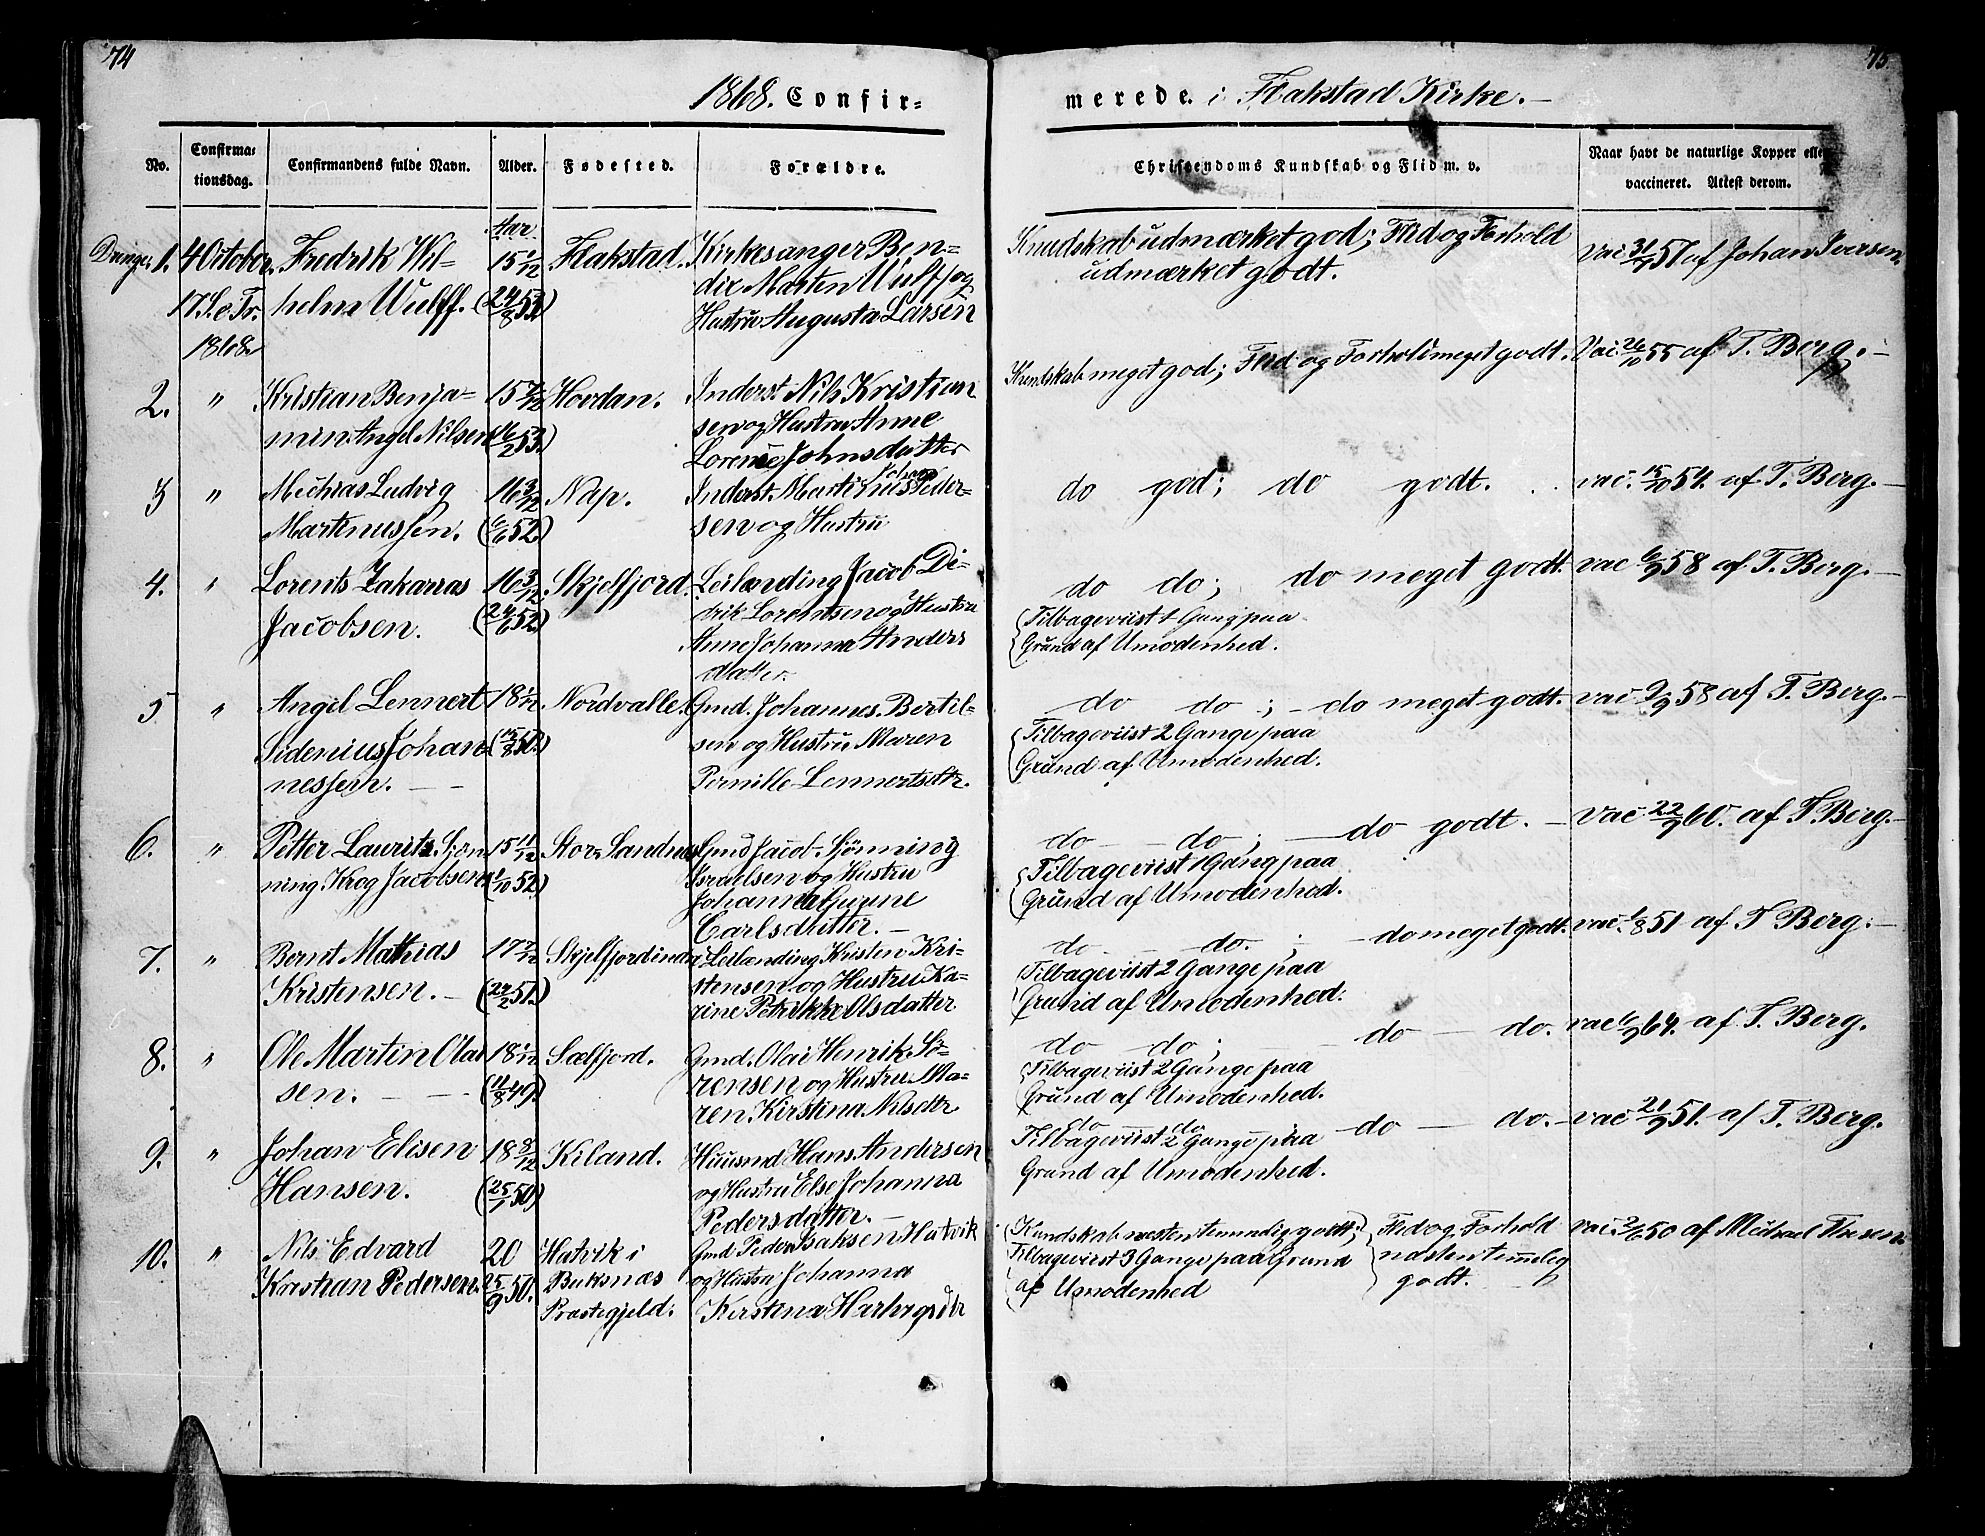 74
75
1868. Confir-
merede. i Flakstad Kirke.
No.
Confirma-
tionsdag.
Confirmandens fulde Navn.
Alder.
Fødested.
Forældre.
Christendoms Kundskab og Flid m. v.
Naar havt de naturlige Kopper eller
vaccineret. Attest derom.
Drenge 1.
4 October
17 S. e. Tr.
1868
Fredrik Wil-
helm Wulff.
Aar
15 1/12
(24/8 53)
Flakstad.
Kirkesanger Ben-
dix Marten Wulff og
Hustru Augusta Larsen
Kundskab udmærket god; Flid og Forhold
udmærket godt.
Vac 31/7 57 af Johan Iversen.
2.
"
Kristian Benja-
min Angel Nilsen
15 7/12
(16/2 53)
Hovdan.
Inderst Nils Kristian
sen og Hustru Anne
Lorense Johnsdatter
Kundskab meget god; Flid og Forhold meget godt.
Vac. 26/10 55 af T. Berg.
3
"
Mechias Ludvig
Martinussen.
16 3/12
(6/6 52)
Nap.
Inderst Martinus Johan Peder-
sen og Hustru
do god; do godt.
vac. 15/10 54. af T. Berg.
4.
"
Lorents Zakarias
Jacobsen.
16 3/12
(24/6 52)
Skjelfjord.
Leilænding Jacob Di-
drik Lorentsen og Hustru
Anne Johanna Anders
datter.
do do; do meget godt.
Tilbageviist 1 Gang paa
Grund af Umodenhed.
vac 6/9 58 af T. Berg.
5
"
Angel Lennert
Sidenius Johan
nessen.
18 1/12
(15/8 50)
Nordvalle.
Gmd. Johannes Bertil-
sen og Hustru Maren
Pernille Lennertsdtr.
do do; do meget godt.
Tilbageviist 2 Gange paa
Grund af Umodenhed.
vac 9/9 58 af T. Berg.
6.
"
Petter Lauritz Sjøn
ning Krog Jacobsen
15 11/12
(1/10 52)
Stor Sandnes
Gmd Jacob Sjønning
Israelsen og Hustru
Johanna Gurine
Carlsdatter.
do do; do godt.
Tilbageviist 1 Gang paa
Grund af Umodenhed.
Vac 22/9 60. af T. Berg.
7.
"
Bernt Mathias
Kristensen.
17 7/12
(22/2 51.)
Skjelfjord
Leilænding Kristen Kri-
stensen og Hustru Ka-
rine Petrikke Olsdatter
do do.; do meget godt.
Tilbageviist 2 Gange paa
Grund af Umodenhed.
vac. 1/8 51 af T Berg.
8.
"
Ole Martin Olai
sen.
18 1/12
(11/8 49)
Sælfjord.
Gmd. Olai Henrik Sö-
rensen og Hustru Ma-
ren Kirstina Nilsdtr
do do; do do.
Tilbageviist 2 Gange paa
Grund af Umodenhed.
vac 6/9 64. af T. Berg.
9.
"
Johan Elisen
Hansen.
18 8/12
(25/1 50)
Kiland.
Huusmd Hans Andersen
og Hustru Else Johanna
Pedersdatter.
do do do do.
Tilbageviist 2 Gange paa
Grund af Umodenhed.
vac 21/9 51. af T. Berg.
10.
"
Nils Edvard
Kristian Pedersen.
20
25/9 50.
Hatvik i
Buksnæs
Præstegjeld.
Gmd Peder Isaksen Hatvik
og Hustru Johanna
Kirstina
Kundskab næsten temmelig godt;
Tilbageviist 3 Gange paa Grund
af Umodenhed
Flid og Forhold
næsten temmelig
godt.
vac. 2/6 50 af Michael